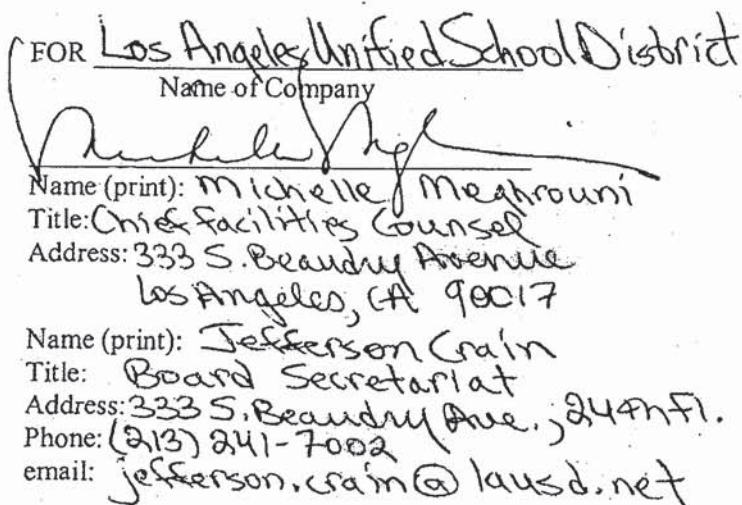 FOR Los Angeles Unified School District
Name of Company
Name (print): Michelle Meghrouni
Title: Chief Facilities Counsel
Address: 333 S. Beaudry Avenue
Los Angeles, CA 90017
Name (print): Jefferson Crain
Title: Board Secretariat
Address: 333 S. Beaudry Ave., 24th Fl.
Phone: (213) 241-7002
email: jefferson.crain@lausd.net